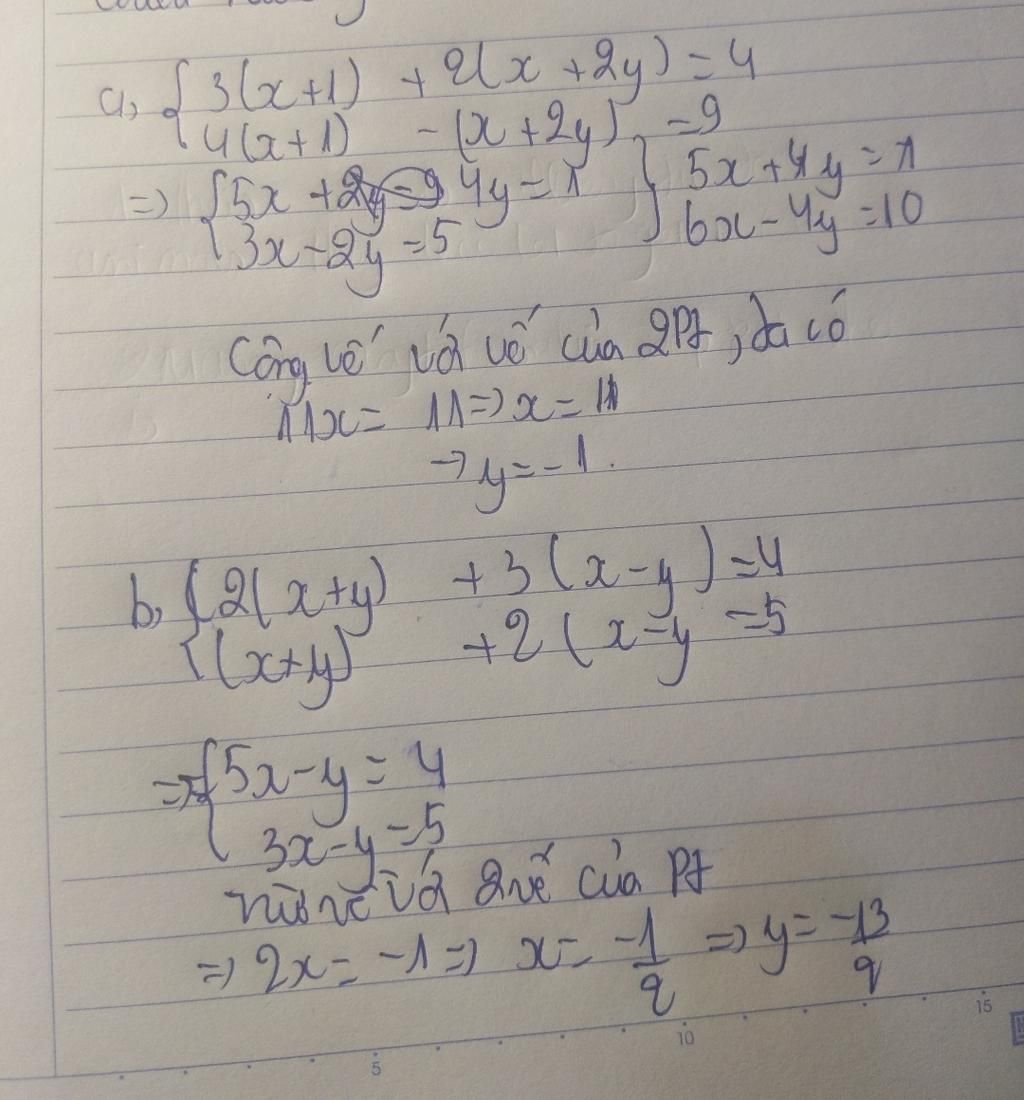 a, { 3(x+1) + 2(x+2y) = 4
4(x+1) - (x+2y) = 9
=> { 5x + 4y = 1 } 5x + 4y = 1
3x - 2y = 5 6x - 4y = 10
Công vế với vế của 2Pt, ta có
11x = 11 => x = 1
→ y = -1.
b, { 2(x+y) + 3(x-y) = 4
(x+y) + 2(x-y = 5
=> { 5x - y = 4
3x - y = 5
với 2 vế của Pt
=> 2x = -1 => x = -1/2 => y = -13/2
5 10 15